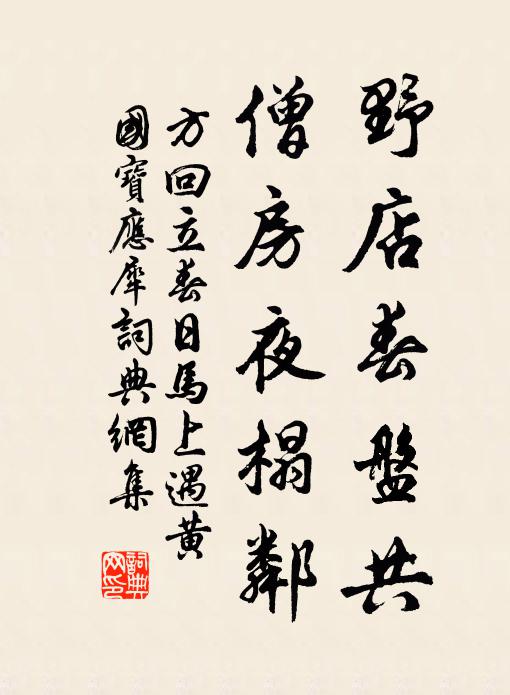 野店春盤共
僧房夜榻鄰
方回立春日馬上遇黄
國寶應犀詞典網集
詞典網印